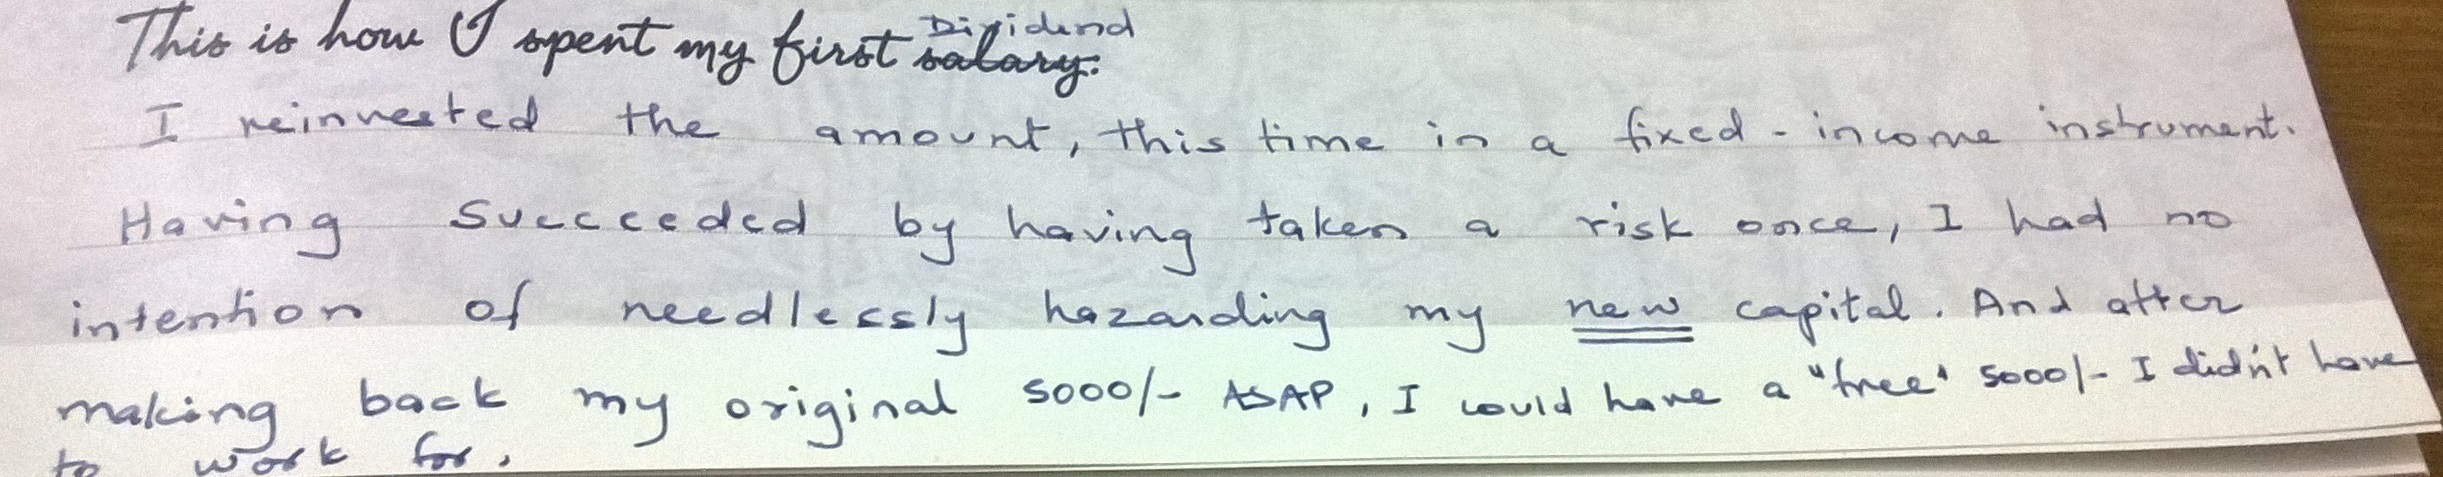 This is how I spent my first salary: Dividend
I reinvested the amount, this time in a fixed-income instrument.
Having succeeded by having taken a risk once, I had no
intention of needlessly hazarding my new capital. And after
making back my original 5000/- ASAP, I would have a "free" 5000/- I didn't have
to work for.